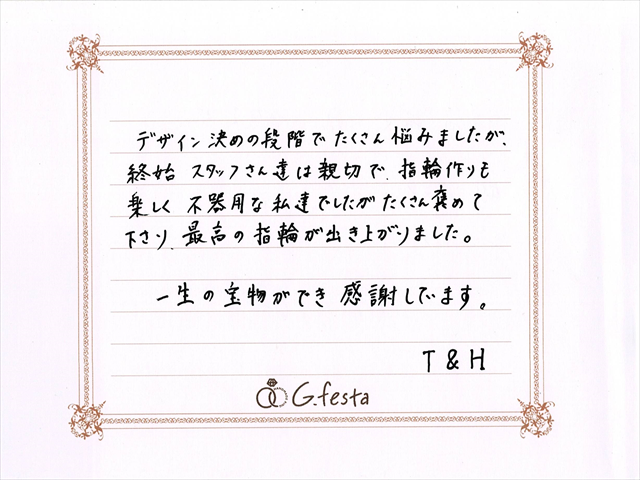 デザイン決めの段階でたくさん悩みましたが、
終始 スタッフさん達は親切で、指輪作りも
楽しく 不器用な私達でしたがたくさん褒めて
下さり、最高の指輪が出き上がりました。
一生の宝物ができ 感謝しています。
T & H
G.festa